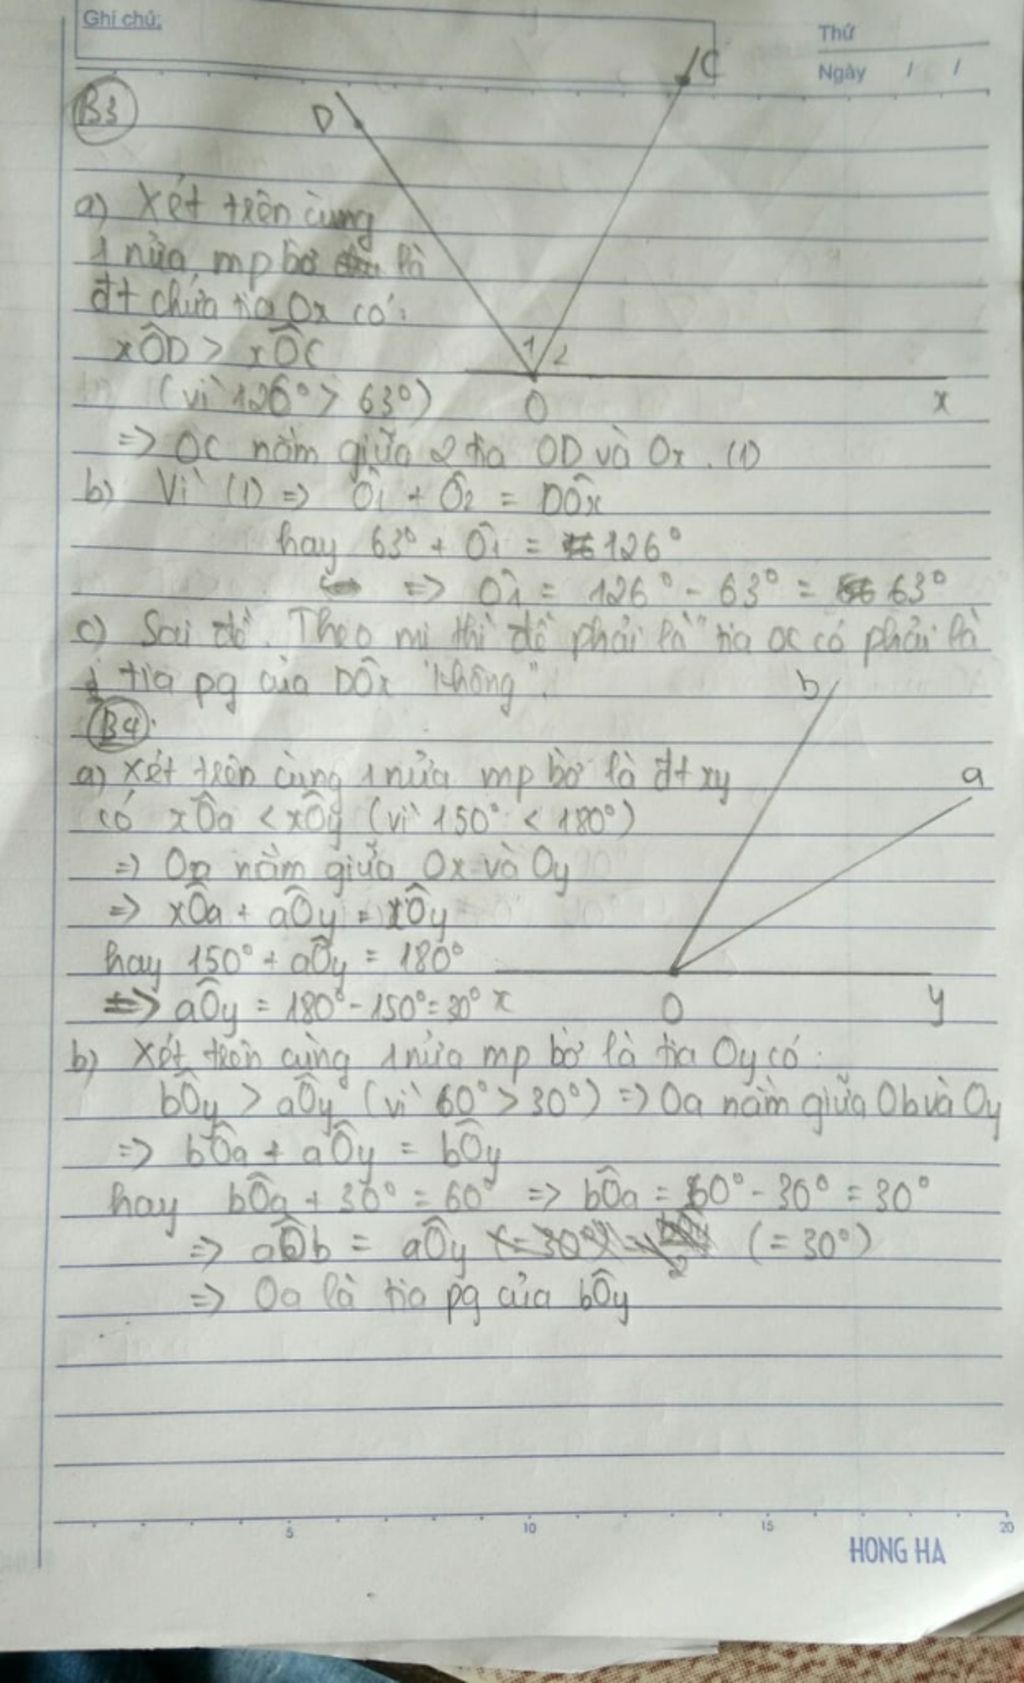 Ghi chú:
Thứ
Ngày / /
B3
D
C
a) Xét trên cùng
1 nửa mp bờ là
đt chứa tia Ox có:
xÔD > xÔC
(vì 126° > 63°)
1 2
O
x
=> OC nằm giữa 2 tia OD và Ox. (1)
b) Vì (1) => Ô1 + Ô2 = DÔx
hay 63° + Ô1 = 126°
=> Ô1 = 126° - 63° = 63°
c) Sai đề. Theo mì thì đề phải là "tia OC có phải là
tia pg của DÔx không".
b
B4
a) Xét trên cùng 1 nửa mp bờ là đt xy
a
có xÔa < xÔy (vì 150° < 180°)
=> Oa nằm giữa Ox và Oy
=> xÔa + aÔy = xÔy
hay 150° + aÔy = 180°
=> aÔy = 180° - 150° = 30°
x
O
y
b) Xét trên cùng 1 nửa mp bờ là tia Oy có:
bÔy > aÔy (vì 60° > 30°) => Oa nằm giữa Ob và Oy
=> bÔa + aÔy = bÔy
hay bÔa + 30° = 60° => bÔa = 60° - 30° = 30°
=> aÔb = aÔy (= 30°)
=> Oa là tia pg của bÔy
5 10 15 20
HONG HA